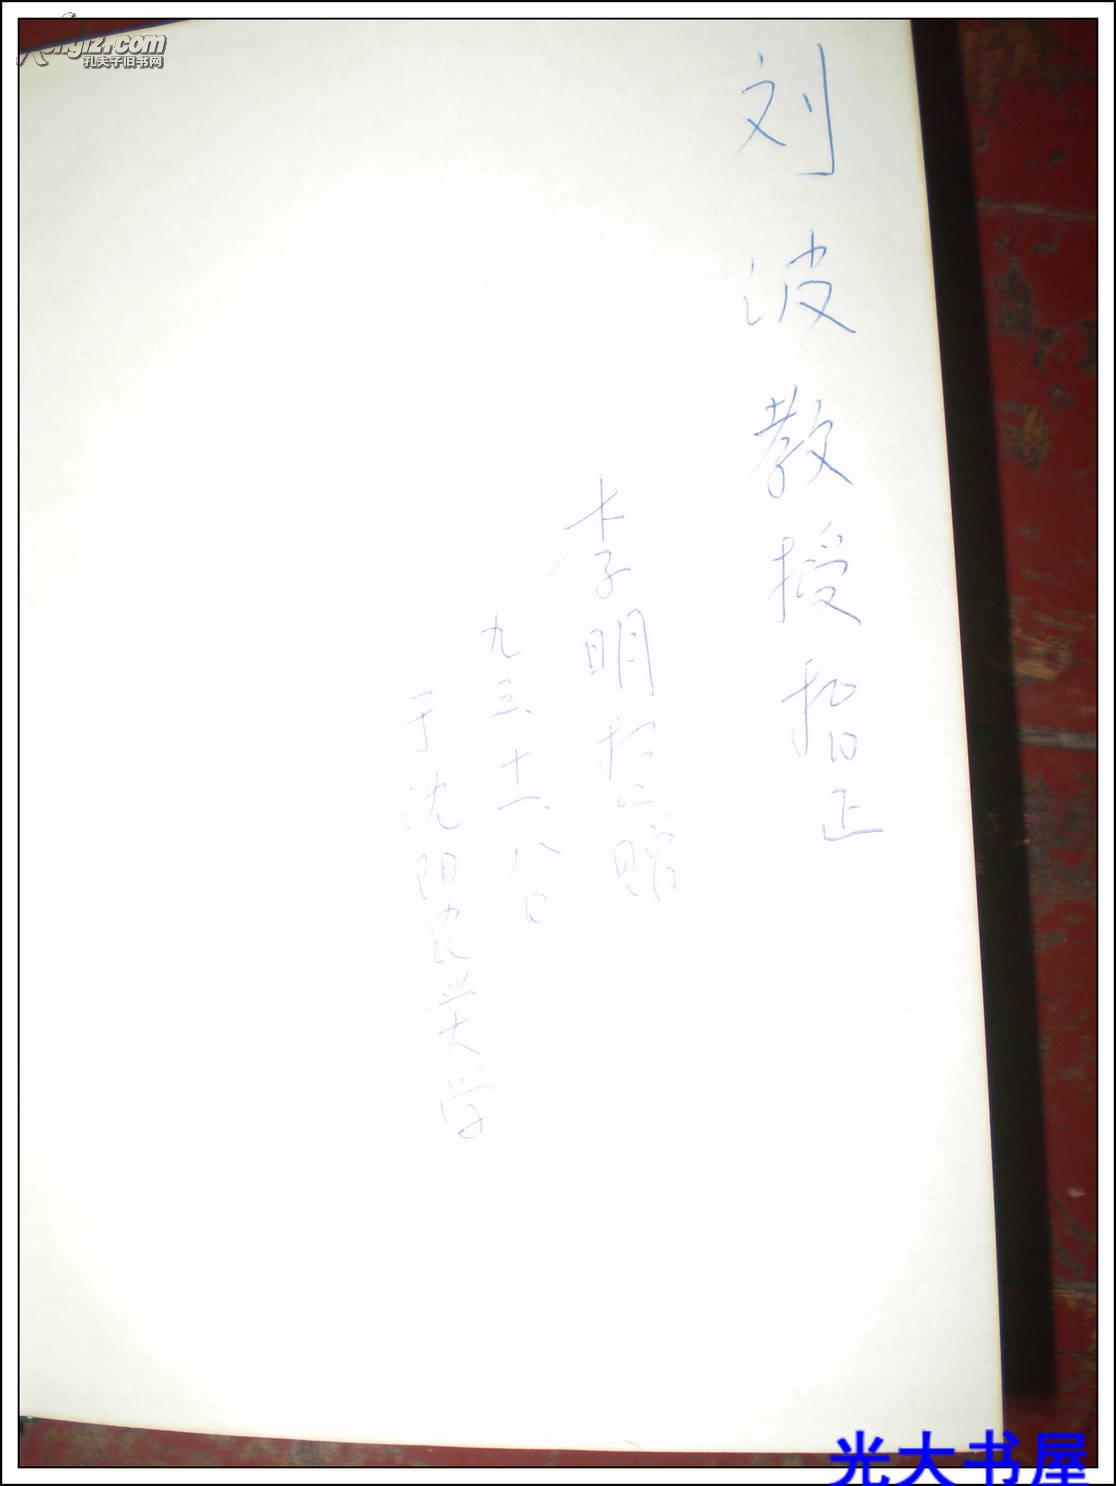 刘波教授指正
李明控赠
九三、十一、八日
于沈阳农业大学
孔夫子旧书网
光大书屋